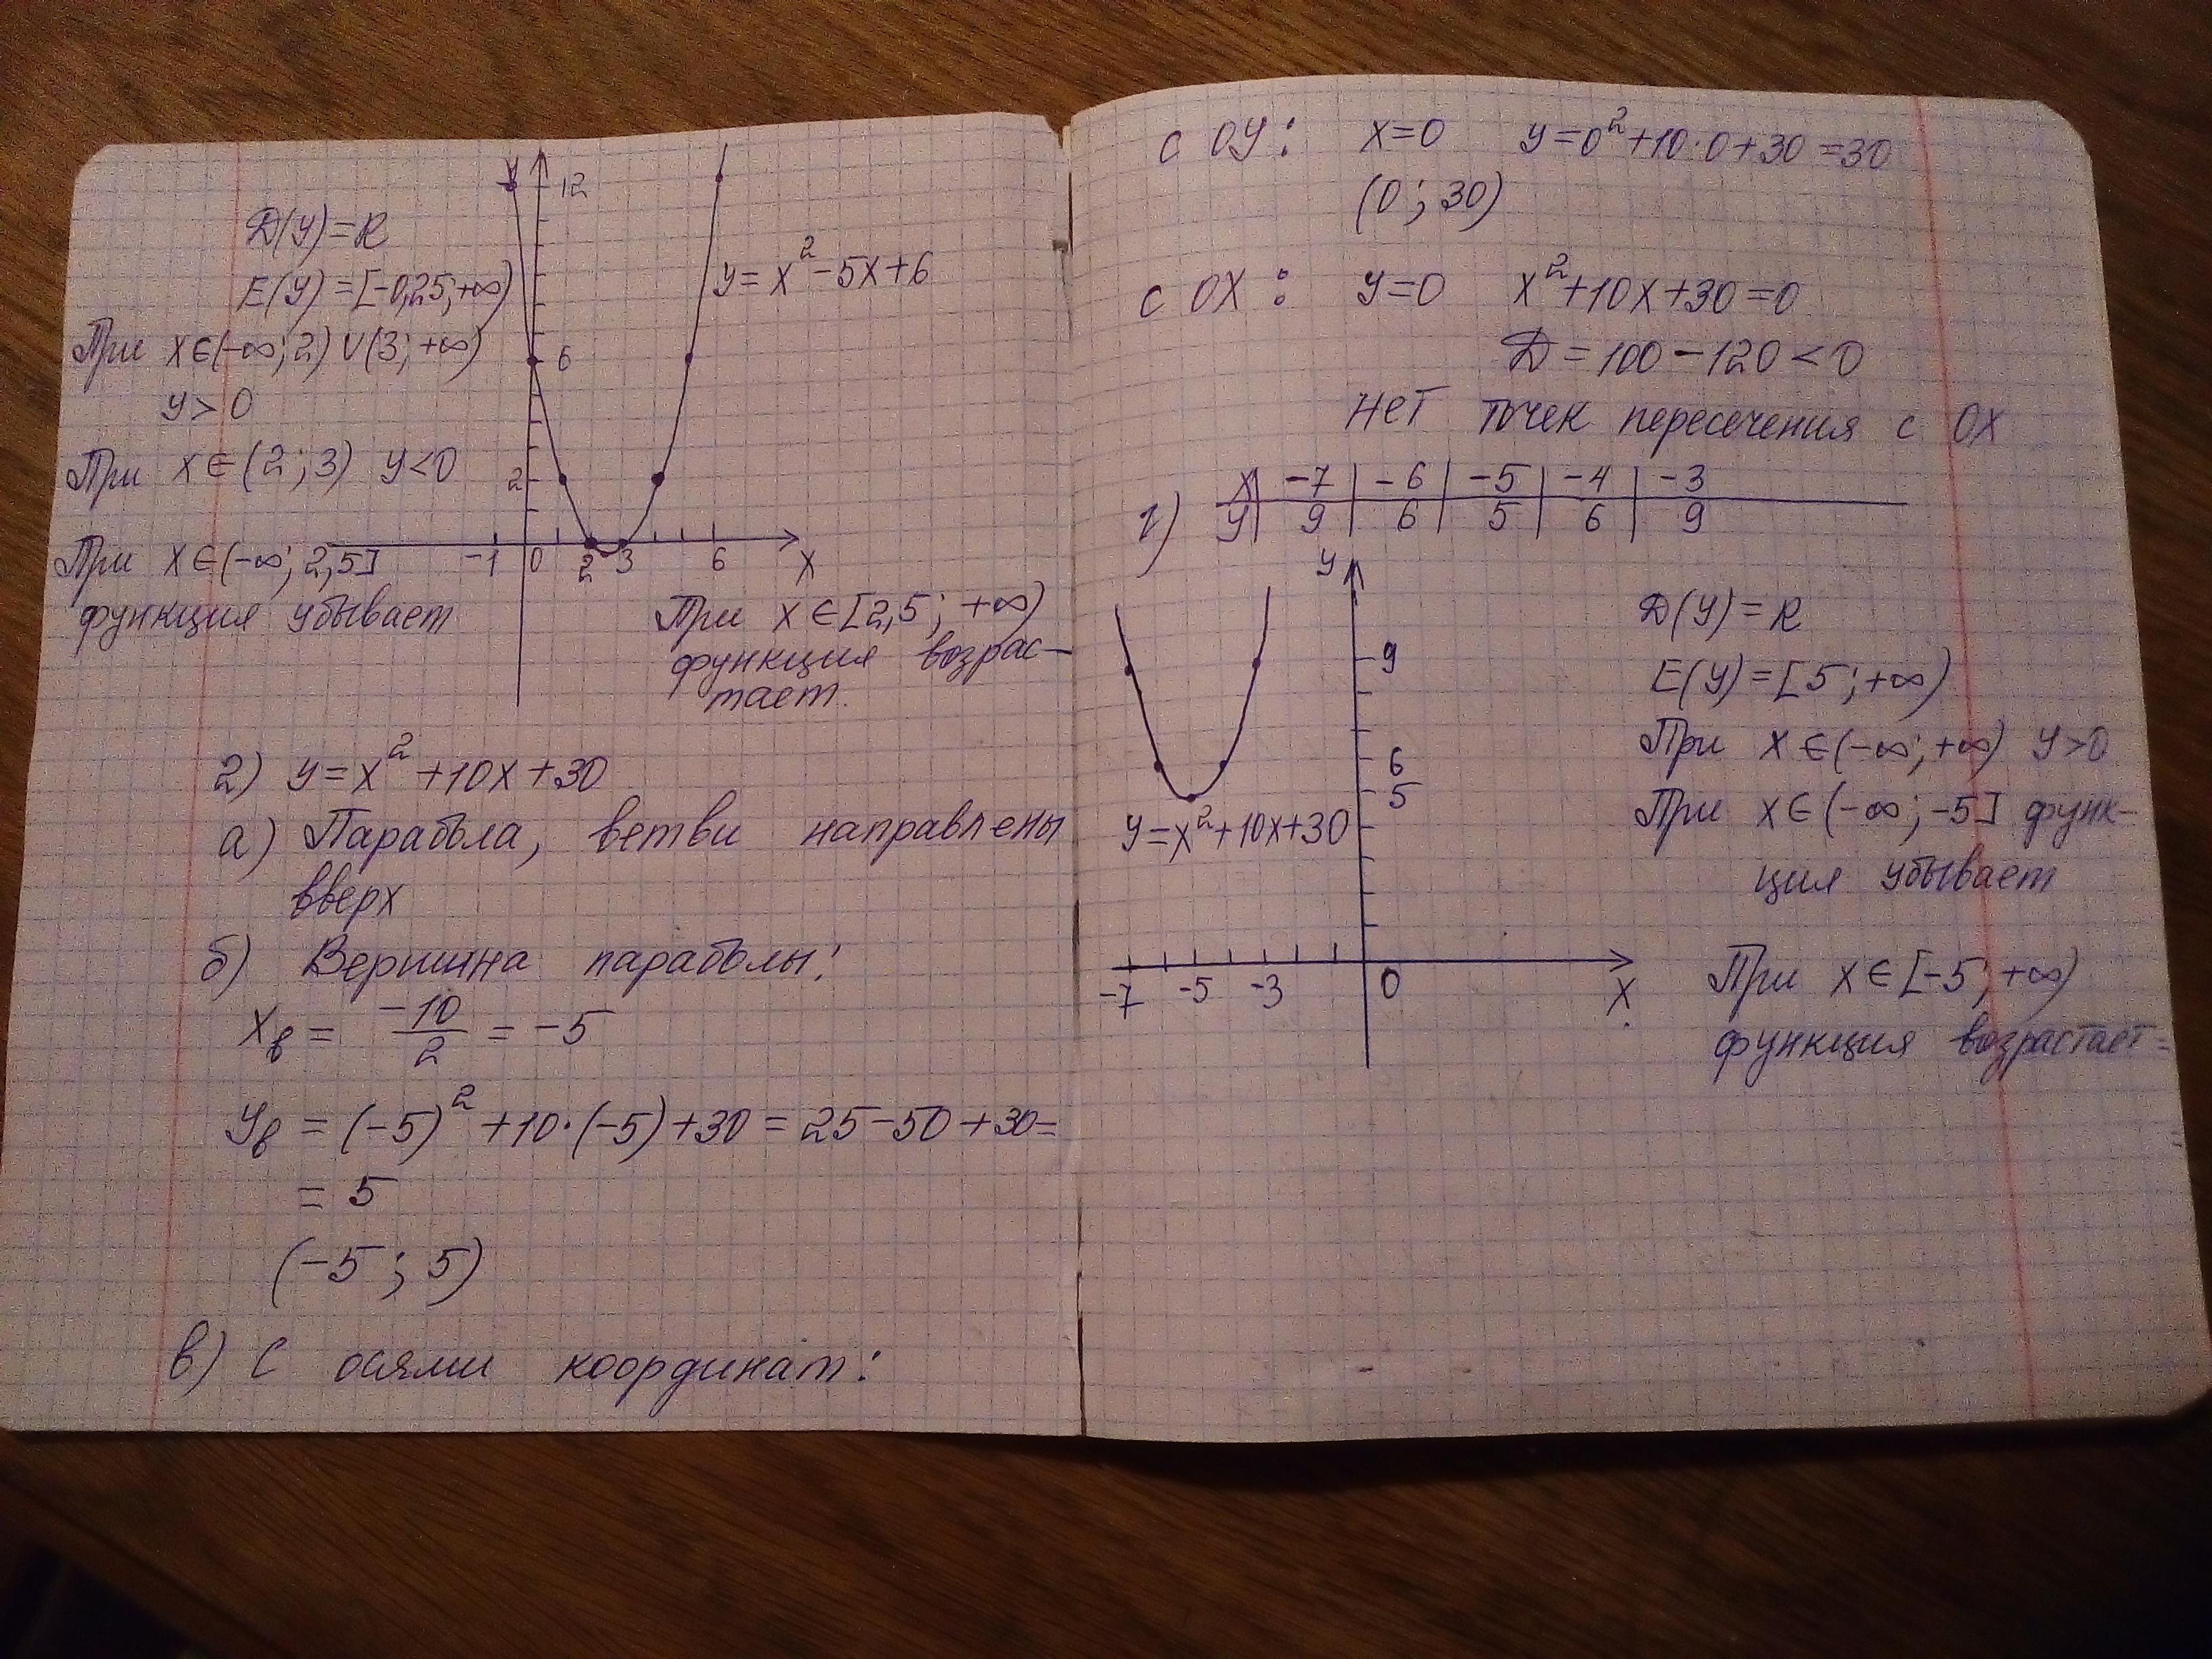 У
12
Д(У)=R
E(У)=[-0,25;+∞)
y=x²-5x+6
При x∈(-∞;2)∪(3;+∞)
6
y>0
При x∈(2;3) y<0
2
-1 0 2 3 6 X
При x∈(-∞;2,5]
функция убывает
При x∈[2,5;+∞)
функция возрас-
тает.
2) y=x²+10x+30
а) Парабола, ветви направлены
вверх
б) Вершина параболы:
xв = -10/2 = -5
yв = (-5)²+10·(-5)+30=25-50+30=
= 5
(-5; 5)
в) С осями координат:
с OY: x=0 y=0²+10·0+30=30
(0; 30)
с OX: y=0 x²+10x+30=0
Д=100-120<0
нет точек пересечения с OX
г) x | -7 | -6 | -5 | -4 | -3
y | 9 | 6 | 5 | 6 | 9
У
9
6
5
y=x²+10x+30
-7 -5 -3 0 X
Д(У)=R
E(У)=[5;+∞)
При x∈(-∞;+∞) y>0
При x∈(-∞;-5] функ-
ция убывает
При x∈[-5;+∞)
функция возрастает